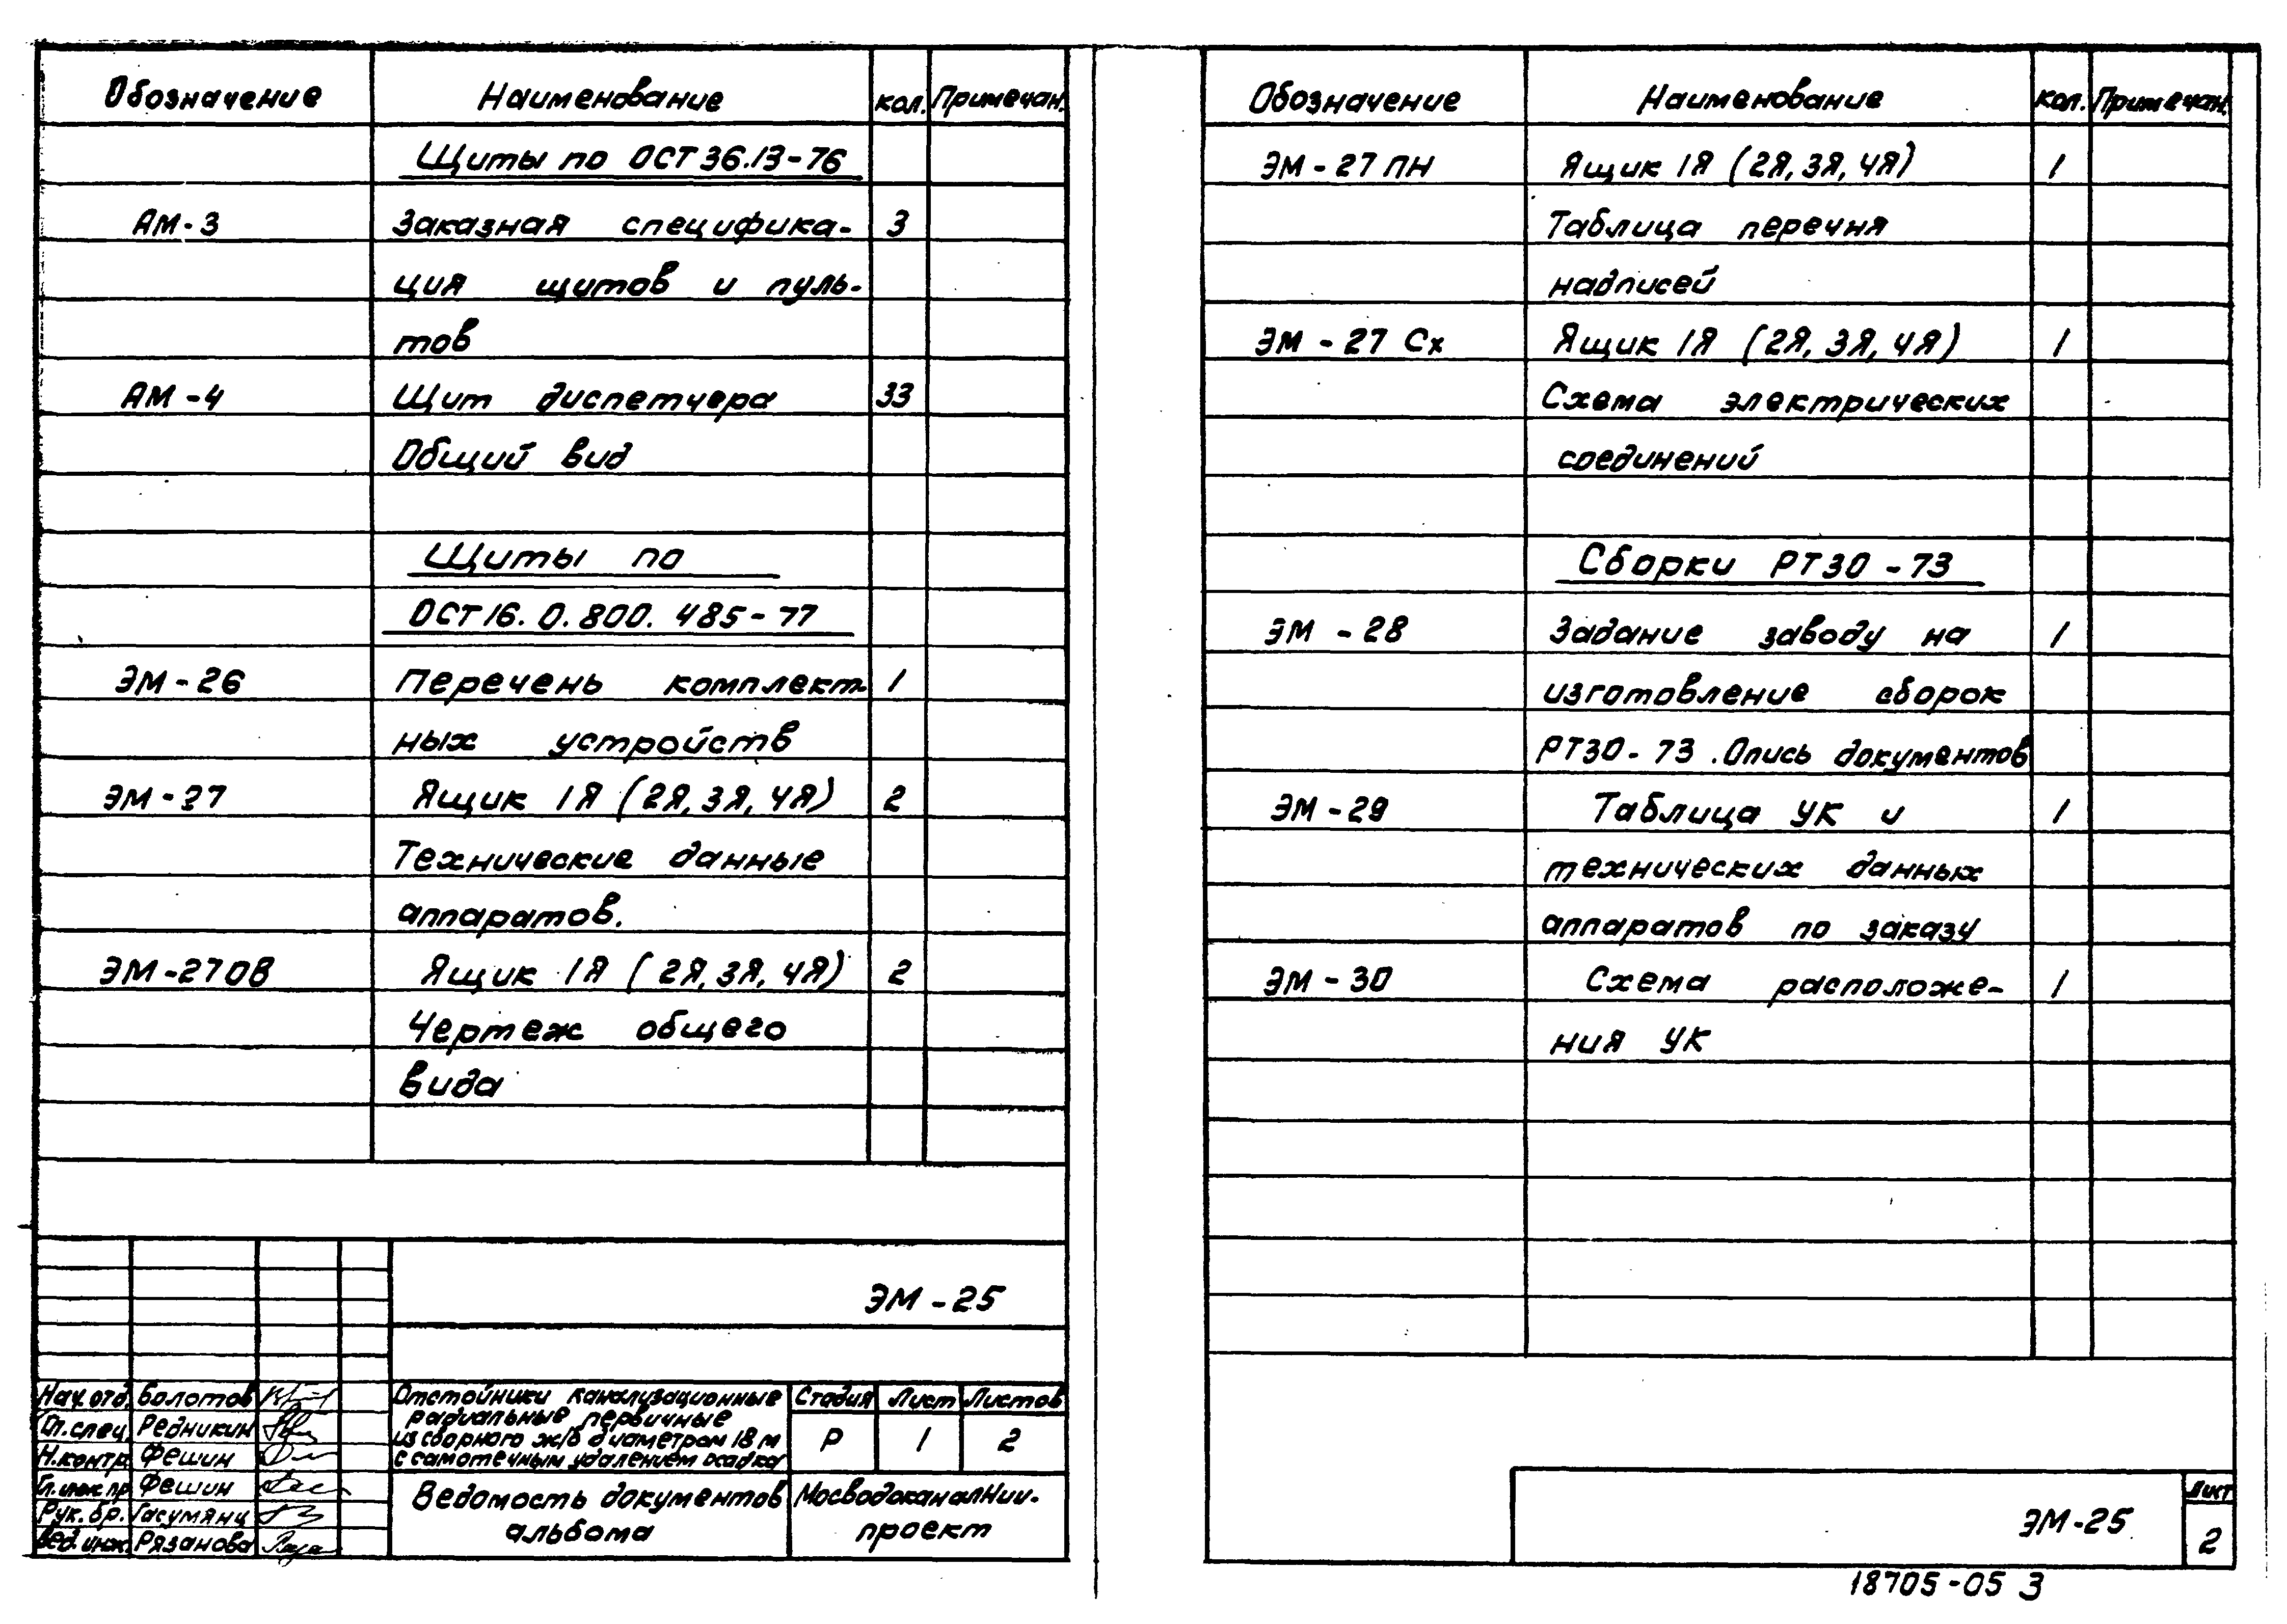 Обозначение Наименование кол. Примечан.
Щиты по ОСТ 36.13-76
АМ-3 Заказная специфика- 3
ция щитов и пуль-
тов
АМ-4 Щит диспетчера 33
Общий вид
Щиты по
ОСТ 16.0.800.485-77
ЭМ-26 Перечень комплект- 1
ных устройств
ЭМ-27 Ящик 1Я (2Я, 3Я, 4Я) 2
Технические данные
аппаратов.
ЭМ-27ОВ Ящик 1Я (2Я, 3Я, 4Я) 2
Чертеж общего
вида
ЭМ-25
Нач. отд. Болотов
Гл. спец. Редникин
Н.контр. Фешин
Гл. инж. пр. Фешин
Рук. бр. Гасумянц
Вед. инж. Рязанова
Отстойники канализационные
радиальные первичные
из сборного ж/б диаметром 18 м
с самотечным удалением осадка
Стадия Лист Листов
Р 1 2
Ведомость документов
альбома
МосводоканалНии-
проект
Обозначение Наименование Кол. Примечан.
ЭМ-27 ПН Ящик 1Я (2Я, 3Я, 4Я) 1
Таблица перечня
надписей
ЭМ-27 Сх Ящик 1Я (2Я, 3Я, 4Я) 1
Схема электрических
соединений
Сборки РТ30-73
ЭМ-28 Задание заводу на 1
изготовление сборок
РТ30-73. Опись документов
ЭМ-29 Таблица УК и 1
технических данных
аппаратов по заказу
ЭМ-30 Схема расположе- 1
ния УК
ЭМ-25
Лист
2
18705-05 3